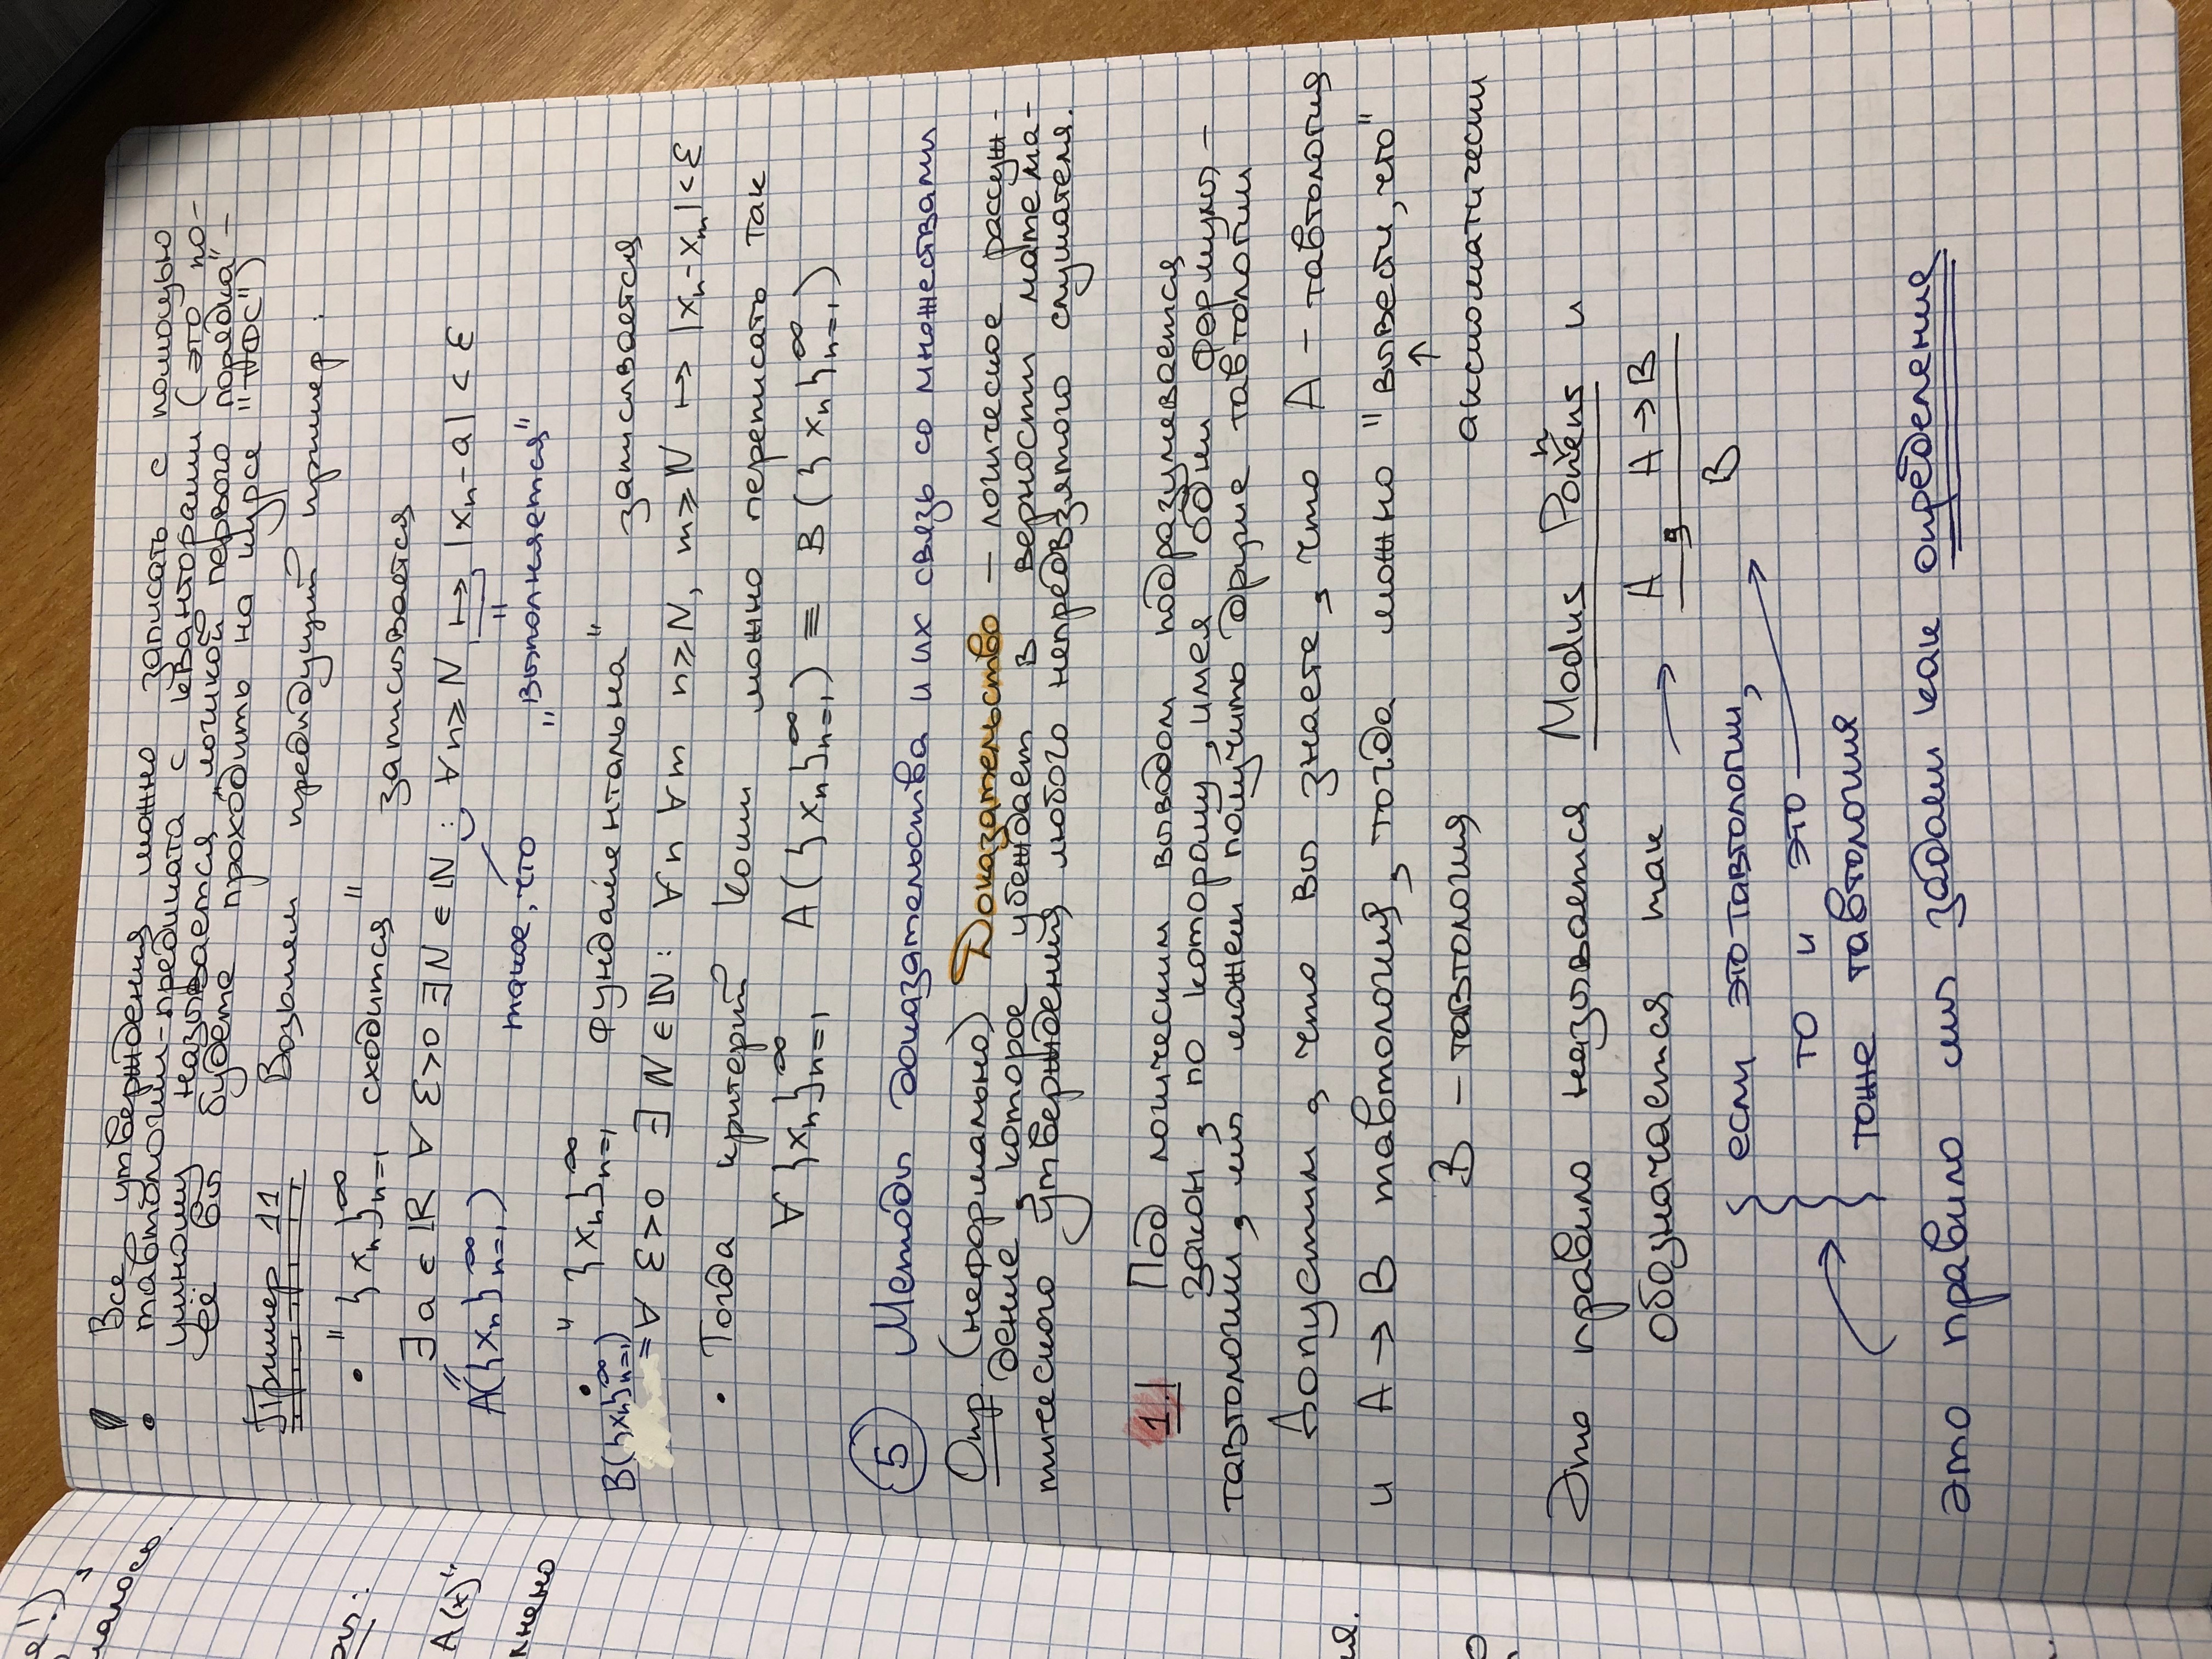 е!),
малось
ры:
A(x)"
кнено
ия.
! Все утверждения можно записать с помощью
тавтологии-предиката с кванторами (это по-
умному называется „логикой первого порядка" –
её вы будете проходить на курсе "ТФС")
Пример 11 Возьмем предыдущий пример:
• " {xₙ}ₙ₌₁^∞ сходится" записывается
∃a ∈ ℝ ∀ ε>0 ∃N ∈ ℕ : ∀n⩾N ↦ |xₙ-a| < ε
A({xₙ}ₙ₌₁^∞)
такое, что „выполняется"
• " {xₙ}ₙ₌₁^∞ фундаментальна" записывается
B({xₙ}ₙ₌₁^∞)
=∀ ε>0 ∃N∈ℕ: ∀n ∀m n⩾N, m⩾N ↦ |xₙ-xₘ|<ε
• Тогда критерий Коши можно переписать так
∀ {xₙ}ₙ₌₁^∞ A({xₙ}ₙ₌₁^∞) ≡ B({xₙ}ₙ₌₁^∞)
5 Методы доказательства и их связь со множествами
Опр (неформально) Доказательство – логическое рассуж-
дение, которое убеждает в верности матема-
тического утверждения любого непредвзятого слушателя.
1.| Под логическим выводом подразумевается
закон, по которому, имея одни формулы –
тавтологии, мы можем получить другие тавтологии
Допустим, что вы знаете, что A – тавтология
и A → B тавтология, тогда можно "вывести, что"
↑
B – тавтология аксиоматически
Это правило называется Modus Ponens и
обозначается так → A, A→B
B
если это тавтологии,
то и это →
тоже тавтология
это правило мы задаем как определение